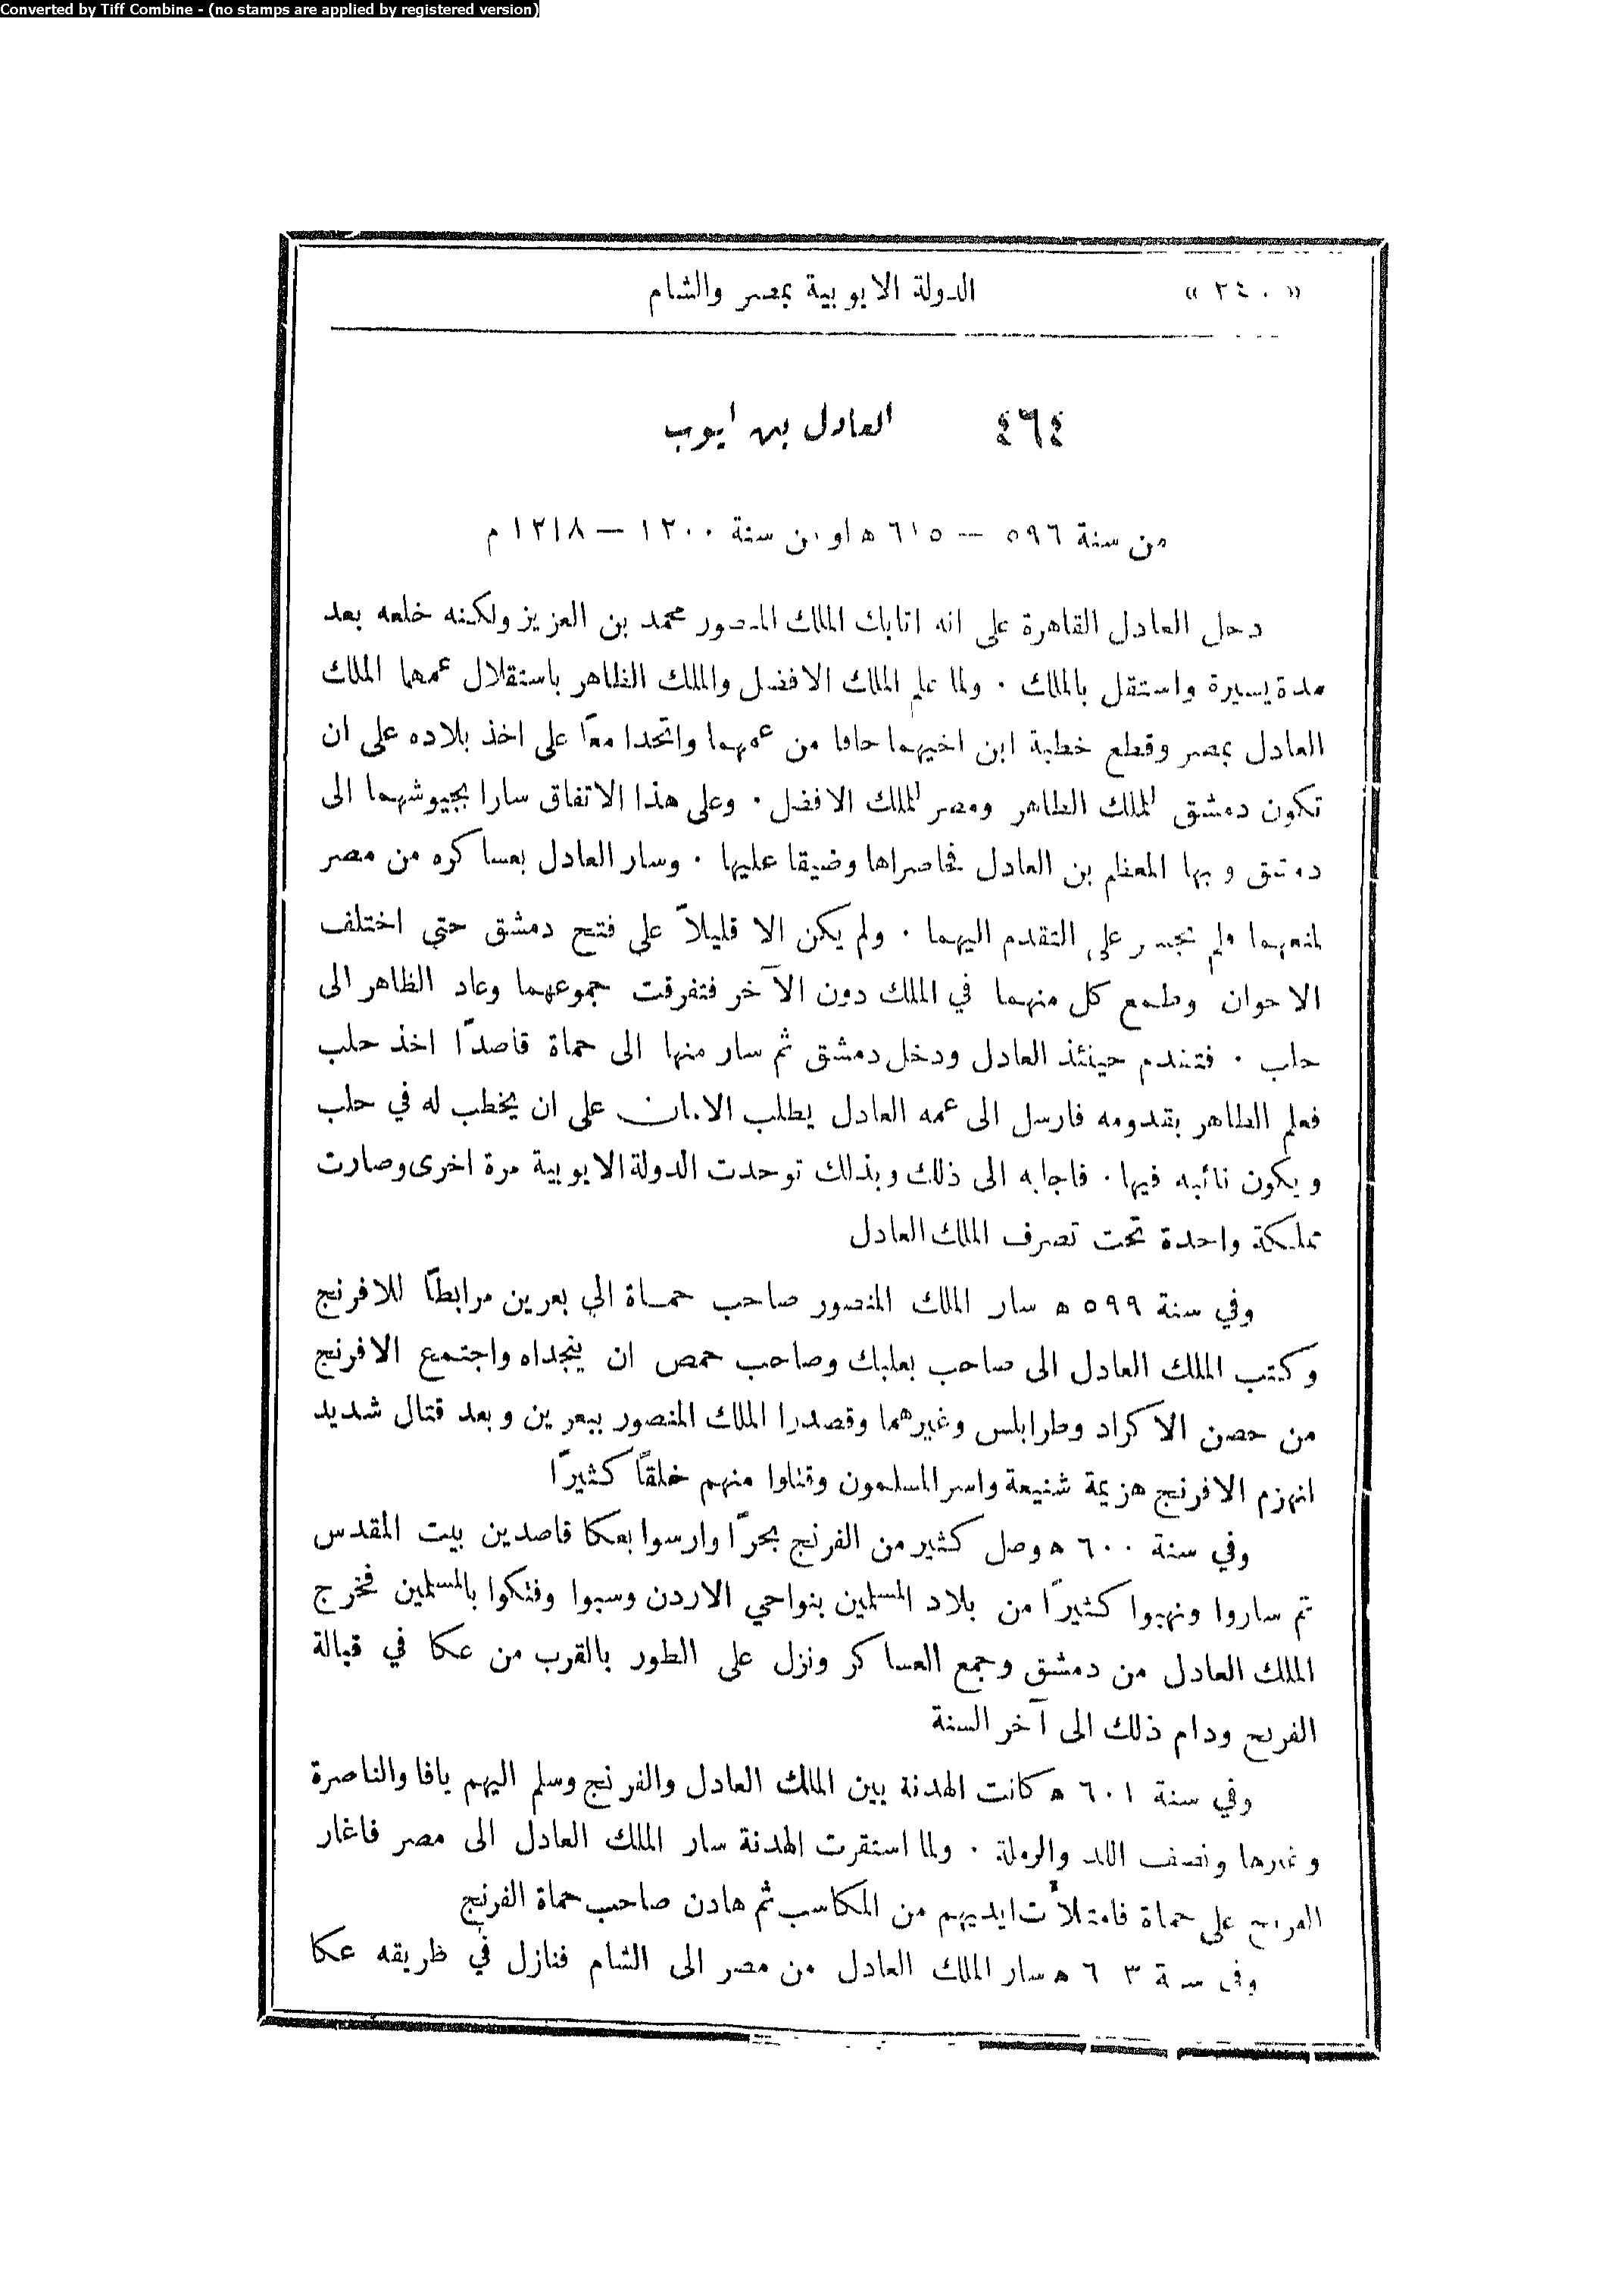 Converted by Tiff Combine - (no stamps are applied by registered version)
« ٢٤٠ » الدولة الايوبية بمصر والشام
٤٦٤ العادل بن ايوب
من سنة ٥٩٦ — ٦١٥ ه او من سنة ١٢٠٠ — ١٢١٨ م
دخل العادل القاهرة على انه اتابك الملك المنصور محمد بن العزيز ولكنه خلعه بعد
مدة يسيرة واستقل بالملك . ولما علم الملك الافضل والملك الظاهر باستقلال عمهما الملك
العادل بمصر وقطع خطبة ابن اخيهما خافا من عمهما واتحدا معًا على اخذ بلاده على ان
تكون دمشق للملك الظاهر ومصر للملك الافضل . وعلى هذا الاتفاق سارا بجيوشهما الى
دمشق وبها المعظم بن العادل فحاصراها وضيقا عليها . وسار العادل بعساكره من مصر
لمنعهما ولم يجسر على التقدم اليهما . ولم يكن الا قليلاً على فتح دمشق حتى اختلف
الاخوان وطمع كل منهما في الملك دون الآخر فتفرقت جموعهما وعاد الظاهر الى
حلب . فتقدم حينئذ العادل ودخل دمشق ثم سار منها الى حماة قاصدًا اخذ حلب
فعلم الظاهر بقدومه فارسل الى عمه العادل يطلب الامان على ان يخطب له في حلب
ويكون نائبه فيها . فاجابه الى ذلك وبذلك توحدت الدولة الايوبية مرة اخرى وصارت
مملكة واحدة تحت تصرف الملك العادل
وفي سنة ٥٩٩ ه سار الملك المنصور صاحب حماة الي بعرين مرابطًا للافرنج
وكتب الملك العادل الى صاحب بعلبك وصاحب حمص ان ينجداه واجتمع الافرنج
من حصن الاكراد وطرابلس وغيرهما وقصدوا الملك المنصور ببعرين وبعد قتال شديد
انهزم الافرنج هزيمة شنيعة واسر المسلمون وقتلوا منهم خلقًا كثيرًا
وفي سنة ٦٠٠ ه وصل كثير من الفرنج بحرًا وارسوا بعكا قاصدين بيت المقدس
ثم ساروا ونهبوا كثيرًا من بلاد المسلمين بنواحي الاردن وسبوا وفتكوا بالمسلمين فخرج
الملك العادل من دمشق وجمع العساكر ونزل على الطور بالقرب من عكا في قبالة
الفرنج ودام ذلك الى آخر السنة
وفي سنة ٦٠١ ه كانت الهدنة بين الملك العادل والفرنج وسلم اليهم يافا والناصرة
وغيرها ونصف اللد والرملة . ولما استقرت الهدنة سار الملك العادل الى مصر فاغار
الفرنج على حماة فامتلأت ايديهم من المكاسب ثم هادن صاحب حماة الفرنج
وفي سنة ٦٠٣ ه سار الملك العادل من مصر الى الشام فنازل في طريقه عكا